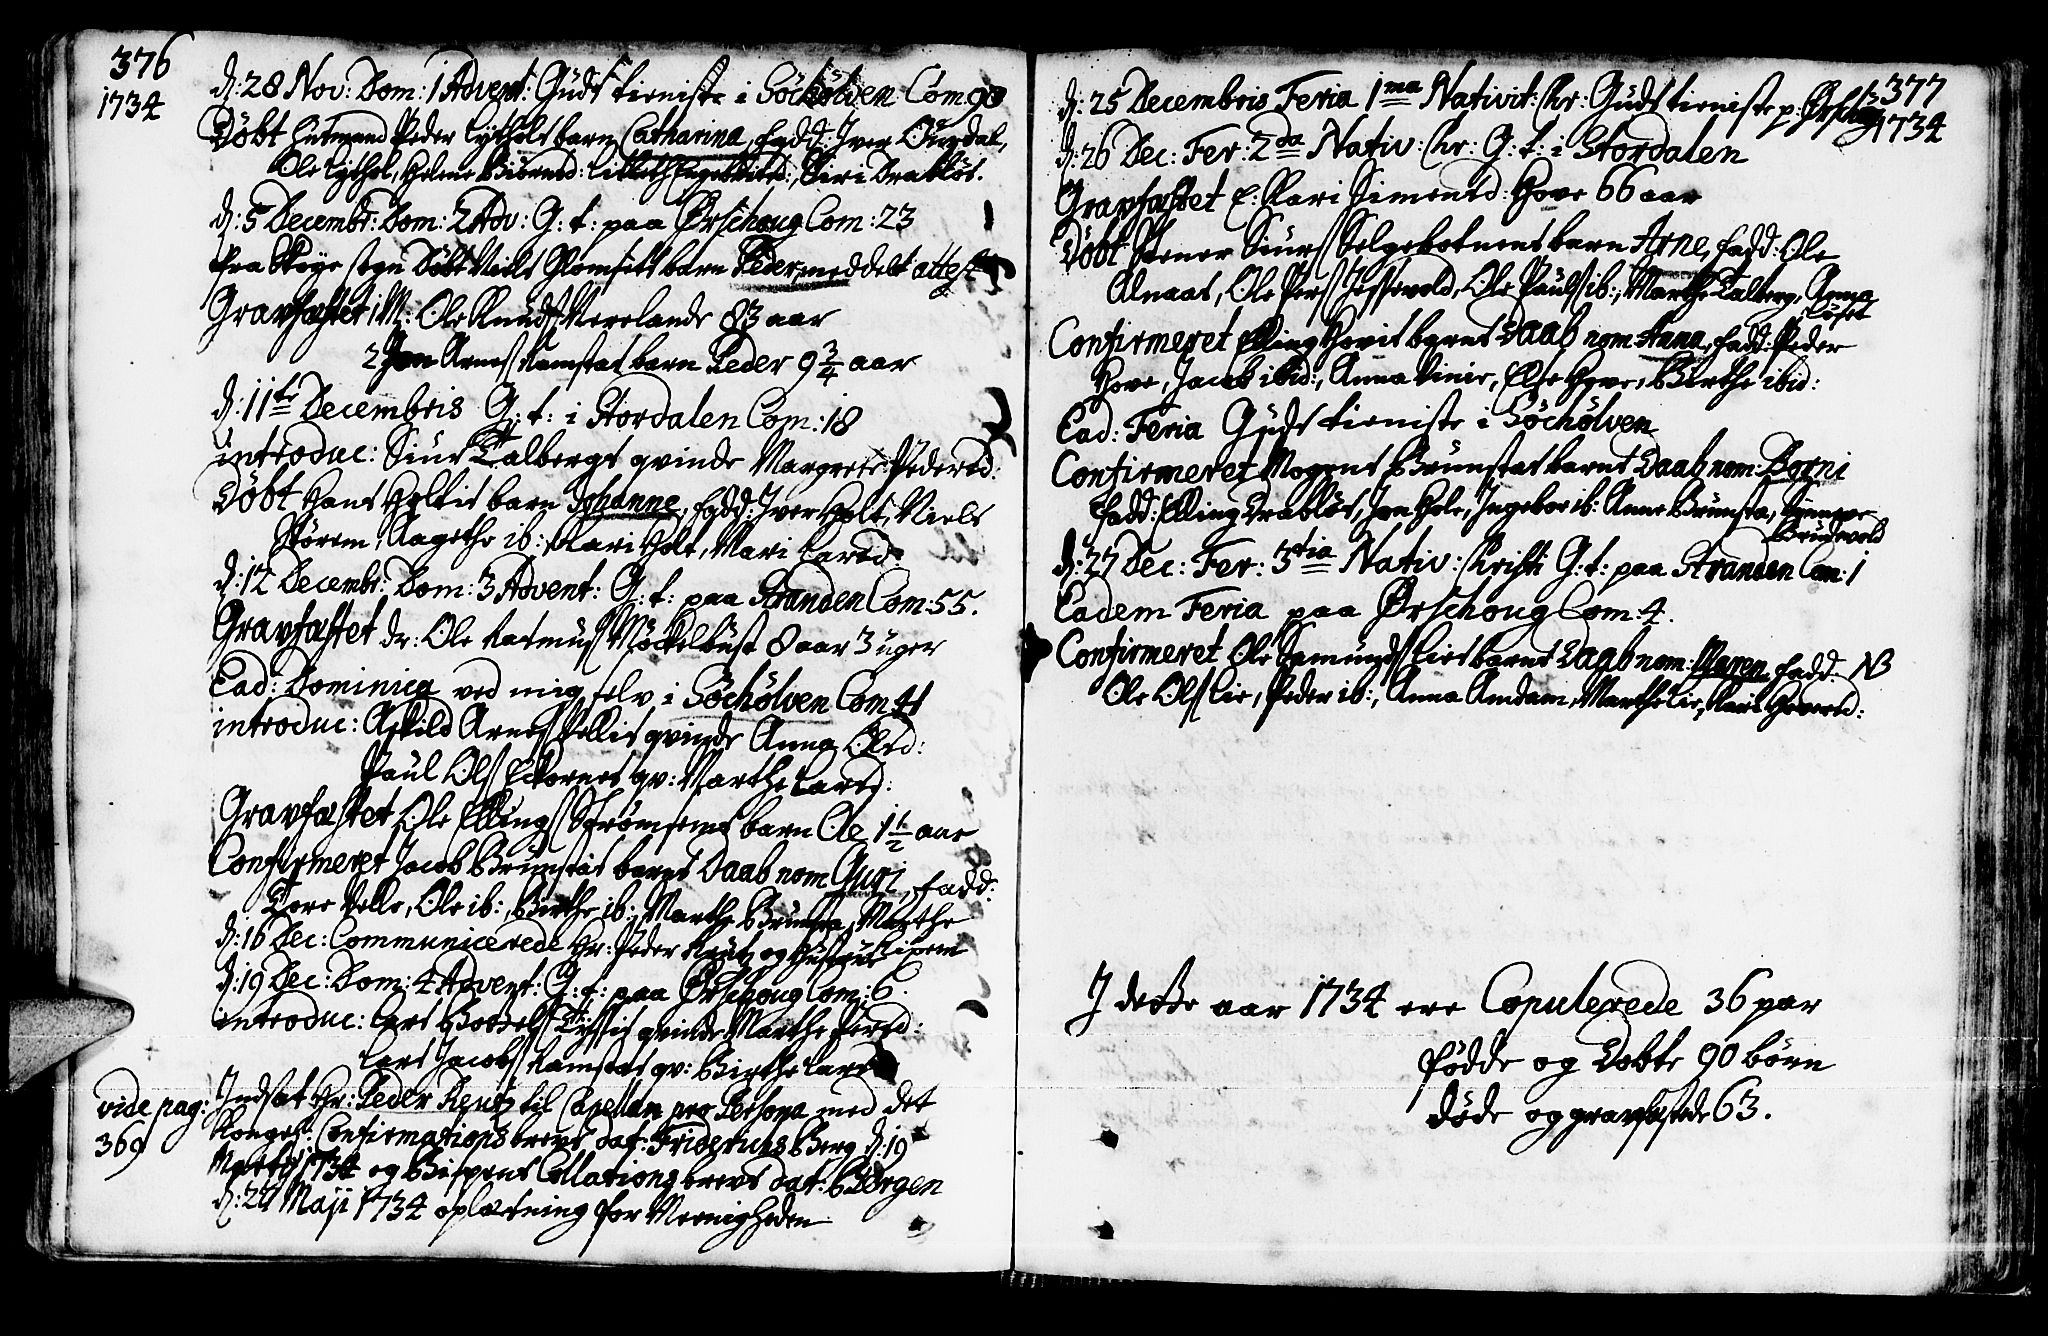 376
1734
d: 28 Nov: Dom: 1 Advent: Guds tieniste i Söcholven Com: 98
Döbt Huusmand Peder Lythols barn Catharina, fadd: Iver Ougdal,
Ole Lythol, Helene Biörnsd: Lisbeth Engebritsd:, Siri Drabløs.
d: 5 Decembr: Dom: 2 Adv: G: t: paa Ørschoug Com: 23
fra Skoye sogn Döbt Niels Glomsets barn Peder, meddelt attest
Gravfæstet 1 M: Ole Knuds Vevelande 83 aar
2 Jon Arnes Ramstas barn Peder 9 3/4 aar
d: 11te Decembris G: t: i Stordalen Com: 18
introduc: Siur Talbergs qvinde Margrete Pedersd:
Döbt Hans Holtis barn Johanne, fadd: Iver Holt, Niels
Störem Aagethe ib:, Kari Holt, Mari Larsd:
d: 12 Decembr: Dom: 3 Advent: G: t: paa Stranden Com: 55.
Gravfæstet dr: Ole Rasmuss Möckelbust 8 aar 3 uger
Ead: Dominica ved mig selv i Söcholven Com 41
introduc: Askild Arnes Vellis qvinde Anna Olsd:
Paul Ols Eckornes qv: Marthe Larsd:
Gravfæstet Ole Ellings Strømsems barn Ole 1 1/2 aar
Confirmeret Jacob Brunstas barns Daab nom Guri, fadd:
Tore Velle, Ole ib:, Birthe ib:, Marthe Brunsta, Marthe
d: 16 Dec: Communicerede Hr: Peder Reutz og Hustrue
d: 19 Dec: Dom: 4 Advent: G: t: paa Ørschoug Com: 6.
introduc: Lars Tyssis qvinde Marthe Persd:
Lars Jacobs Ramstas qv: Birthe Larsd
vide pag:
369
Indsat Hr: Peder Reutz til Capellan pro Persona med det
Kongel: Confirmations brevs dat: Friderichs Berg d: 19
Martij 1734 og Bispens Collations brevs dat: Bergen
d: 22 Maji 1734 oplæsning for Meenigheden
377
1734
d: 25 Decembris Feria 1ma Nativit: Chr: Guds tieniste p: Ørschoug
d: 26 Dec: Fer: 2da Nativ: Chr: G: t: i Stordalen
Gravfæstet E: Kari Simensd: Hove 66 aar
Döbt Stener Siurs Selgebotnens barn Arne, fadd: Ole
Alnaas, Ole Pers Hessevold, Ole Pauls ib:, Marthe Talberg, Anna
Løset
Confirmeret Elling Hovis barns Daab nom: Anna, fadd: Peder
Hove, Jacob ibid:, Anna Vinie, Else Hove, Birthe ibid:
Ead: Feria Guds tieniste i Söcholven
Confirmeret Mogens Brunstas barns Daab nom: Borni
fadd: Elling Drabløs, Jon Hole, Ingebor ib: Anne Brunsta, Synneve
Brudevold
d: 27 Dec: Fer: 3tia Nativ: Christi G: t: paa Stranden Com: 1
Eadem Feria paa Ørschoug Com: 4.
Confirmeret Ole Samunds Lies barns Daab nom: Maren, fadd: NB
Ole Ols Lie, Peder ib:, Anna Amdam, Marthe Lie, Kari Hovesd:
I dette aar 1734 ere Copulerede 36 par
födde og Döbte 90 börn
döde og gravfæstede 63.